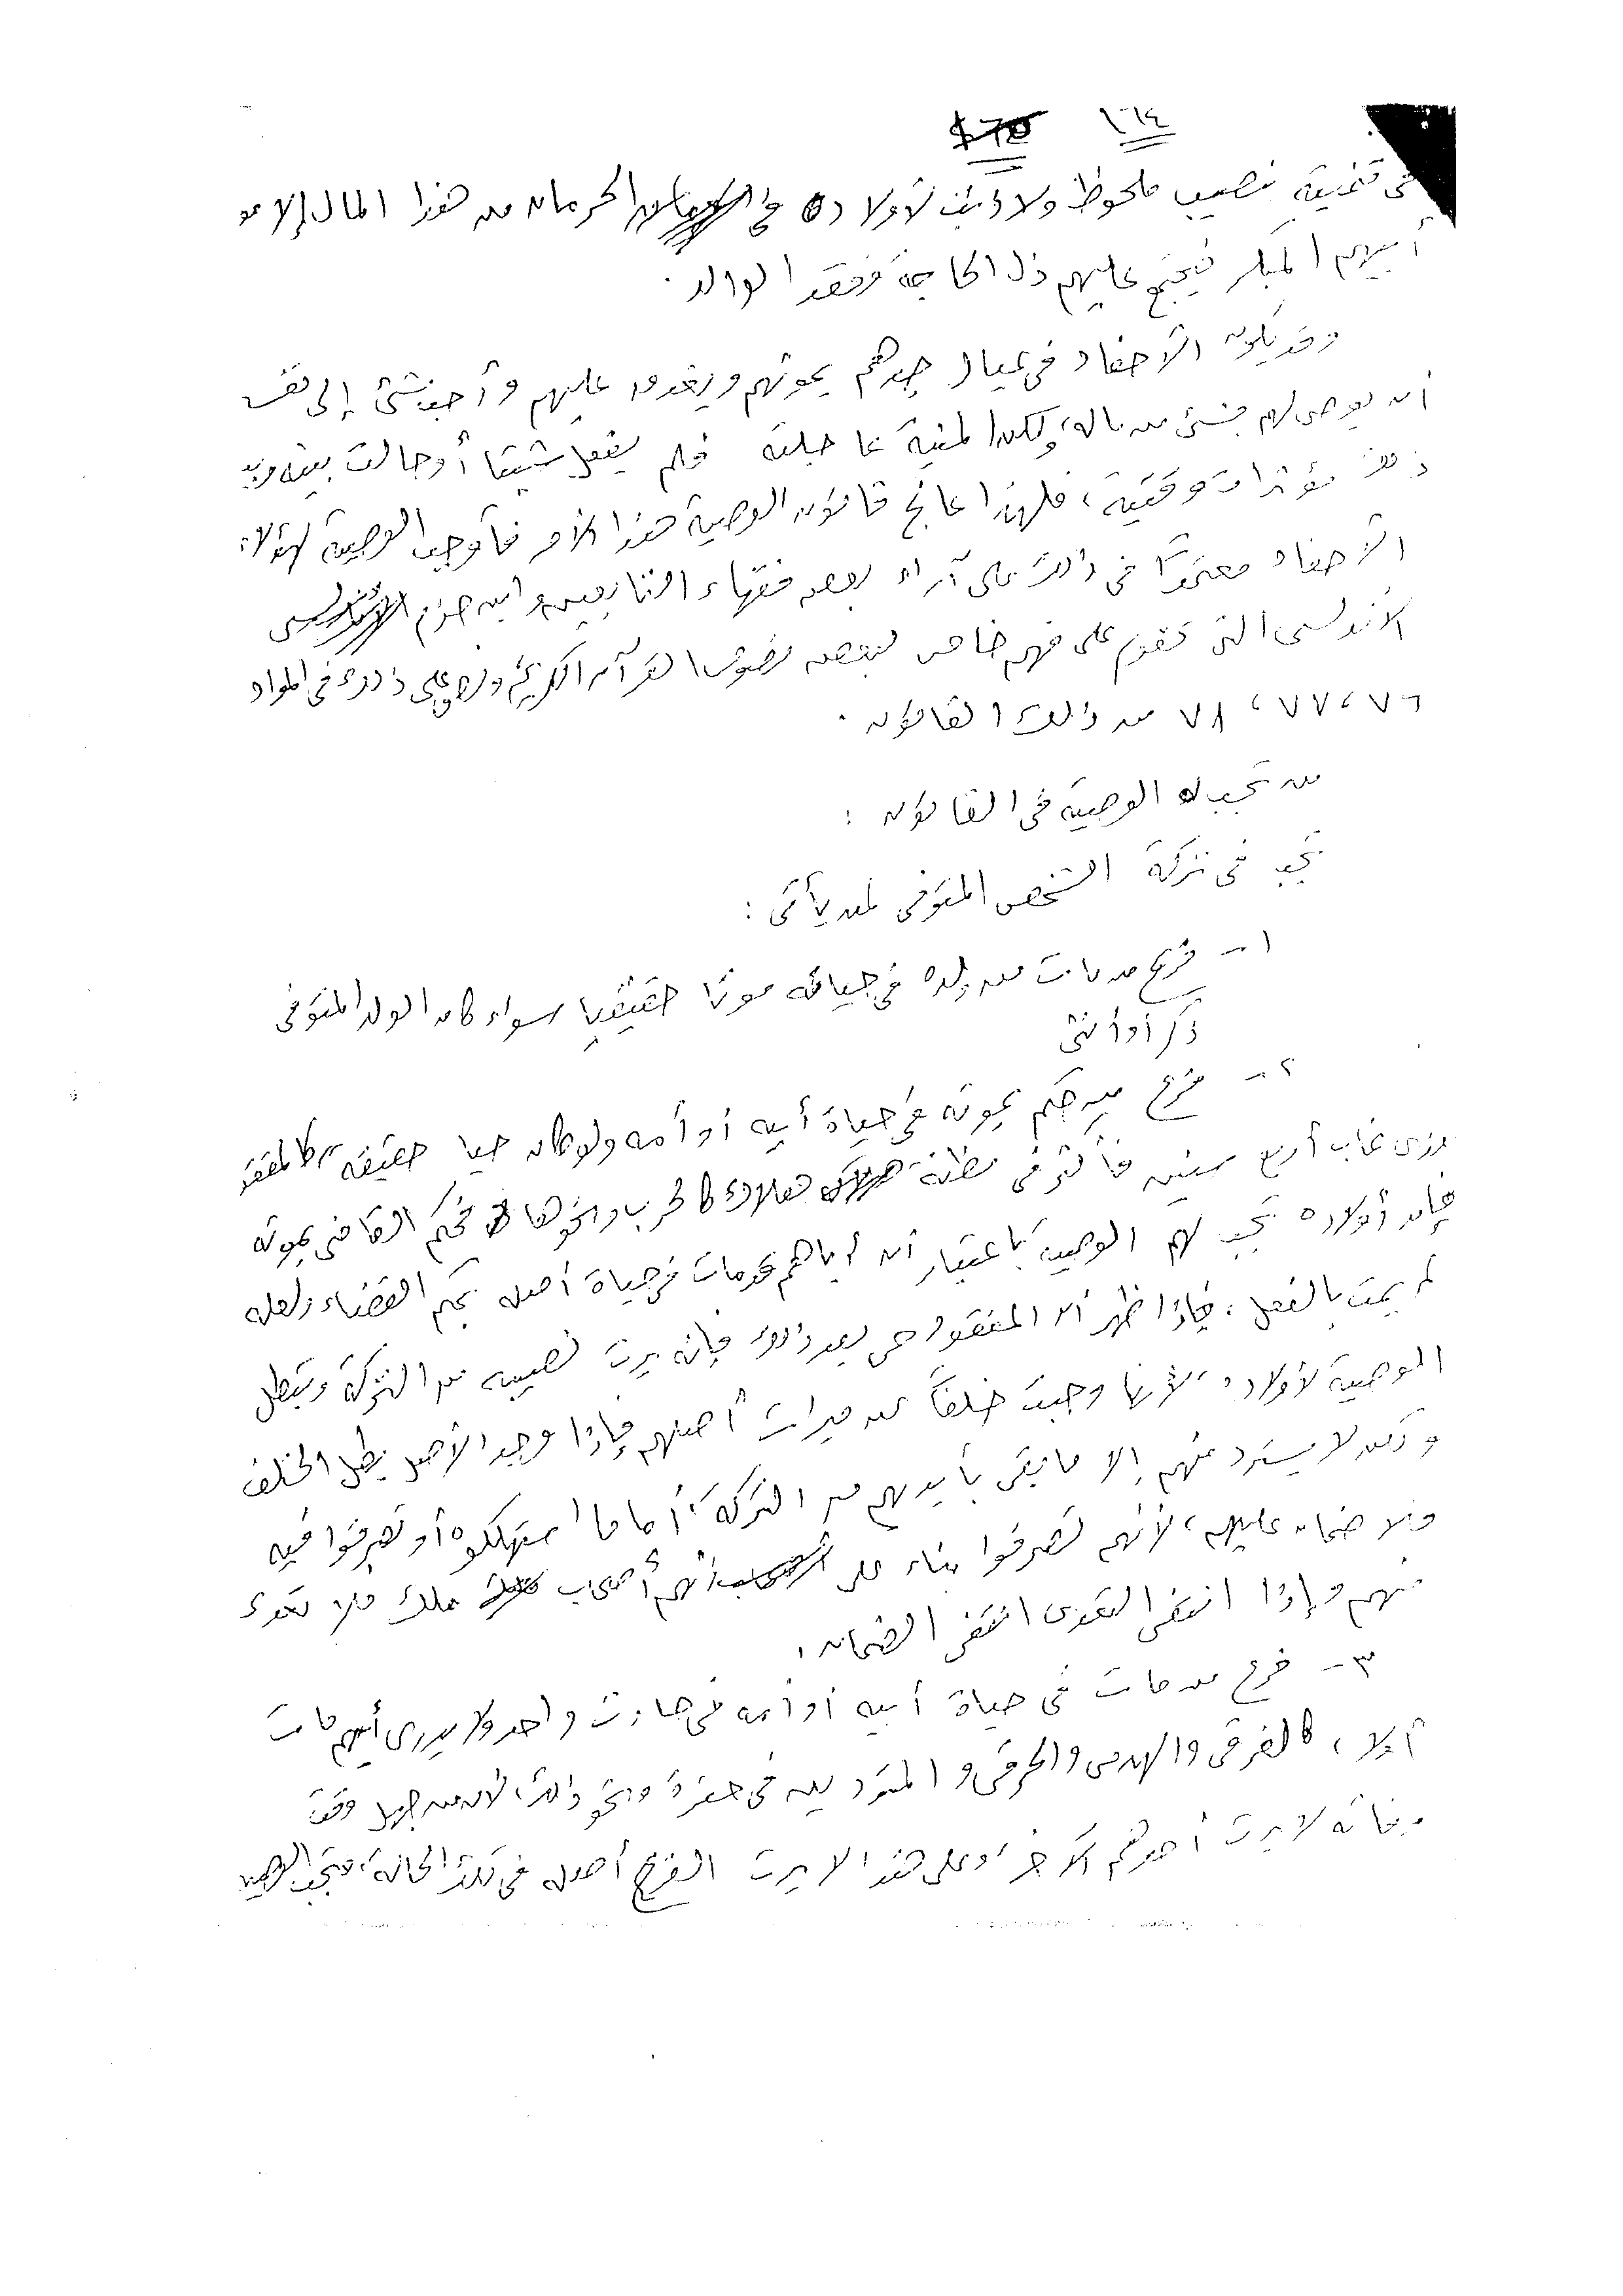 ١٦٤
فى تنمية نصيب ملحوظ ولا ذنب لأولاده فى الحرمان من هذا المال إلا موت
أبيهم المبكر فيجتمع عليهم ذل الحاجة وفقد الوالد .
وقد يكون الأحفاد فى عيال جدهم يمونهم ويغدق عليهم وأحب شئ إلى نفسه
أن يوصى لهم بشئ من ماله، ولكن المنية عاجلته فلم يفعل شيئا أو حالت بينه وبين
ذلك مؤثرات وقتية، فلهذا عالج قانون الوصية هذا الأمر فأوجب الوصية لهؤلاء
الأحفاد معتمدًا فى ذلك على آراء بعض فقهاء التابعين وابن حزم
الأندلسى التى تقوم على فهم خاص لبعض نصوص القرآن الكريم ونص على ذلك فى المواد
٧٦، ٧٧، ٧٨ من ذلك القانون .
من تجب له الوصية فى القانون :
تجب فى تركة الشخص المتوفى لمن يأتى :
١- فرع من مات من ولده فى حياته موتا حقيقيا سواء كان الولد المتوفى
ذكر أو أنثى
٢- فرع من حكم بموته فى حياة أبيه أو أمه ولو كان حيا حقيقة، كالمفقود
الذى غاب أربع سنين فأكثر فى مظنة هلاك كالحرب ونحوها فحكم القاضى بموته
فإن أولاده تجب لهم الوصية باعتبار أن أباهم قد مات فى حياة أصله بحكم القضاء ولعله
لم يمت بالفعل، فإذا ظهر أن المفقود حى بعد ذلك فإنه يرث نصيبه من التركة وتبطل
الوصية لأولاده، لأنها وجبت خلفًا عن ميراث أصلهم فإذا وجد الأصل بطل الخلف
ولكن لا يسترد منهم إلا ما بقى بأيديهم من التركة، أما ما استهلكوه أو تصرفوا فيه
فلا ضمان عليهم، لأنهم تصرفوا بناء على أنهم أصحاب ملك فلا تعدى
منهم وإذا انتفى التعدى انتفى الضمان .
٣- فرع من مات فى حياة أبيه أو أمه فى حادث واحد ولا يدرى أيهم مات
أولا، كالغرقى والهدمى والحرقى والمتردين فى حفرة ونحو ذلك، لأن من جهل وقت
وفاته لا يرث أحدهم الآخر، وعلى هذا لا يرث الفرع أصله فى تلك الحالة، فتجب الوصية